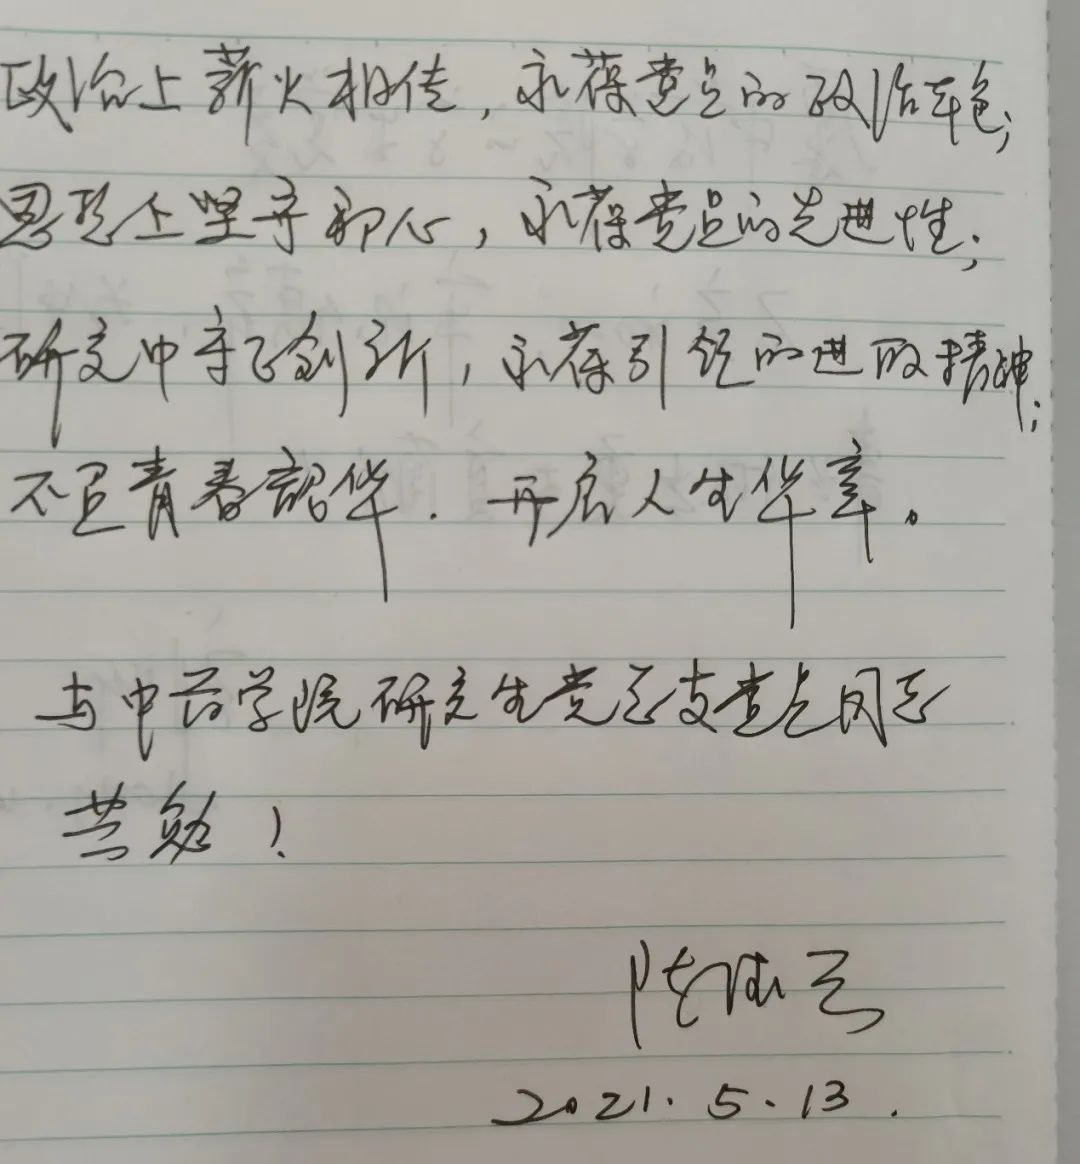 政治上薪火相传，永葆党员的政治本色；
思想上坚守初心，永葆党员的先进性；
研究中守正创新，永葆引领的进取精神；
不负青春韶华．开启人生华章。
与中药学院研究生党总支党员同志
共勉！
陆
2021.5.13.